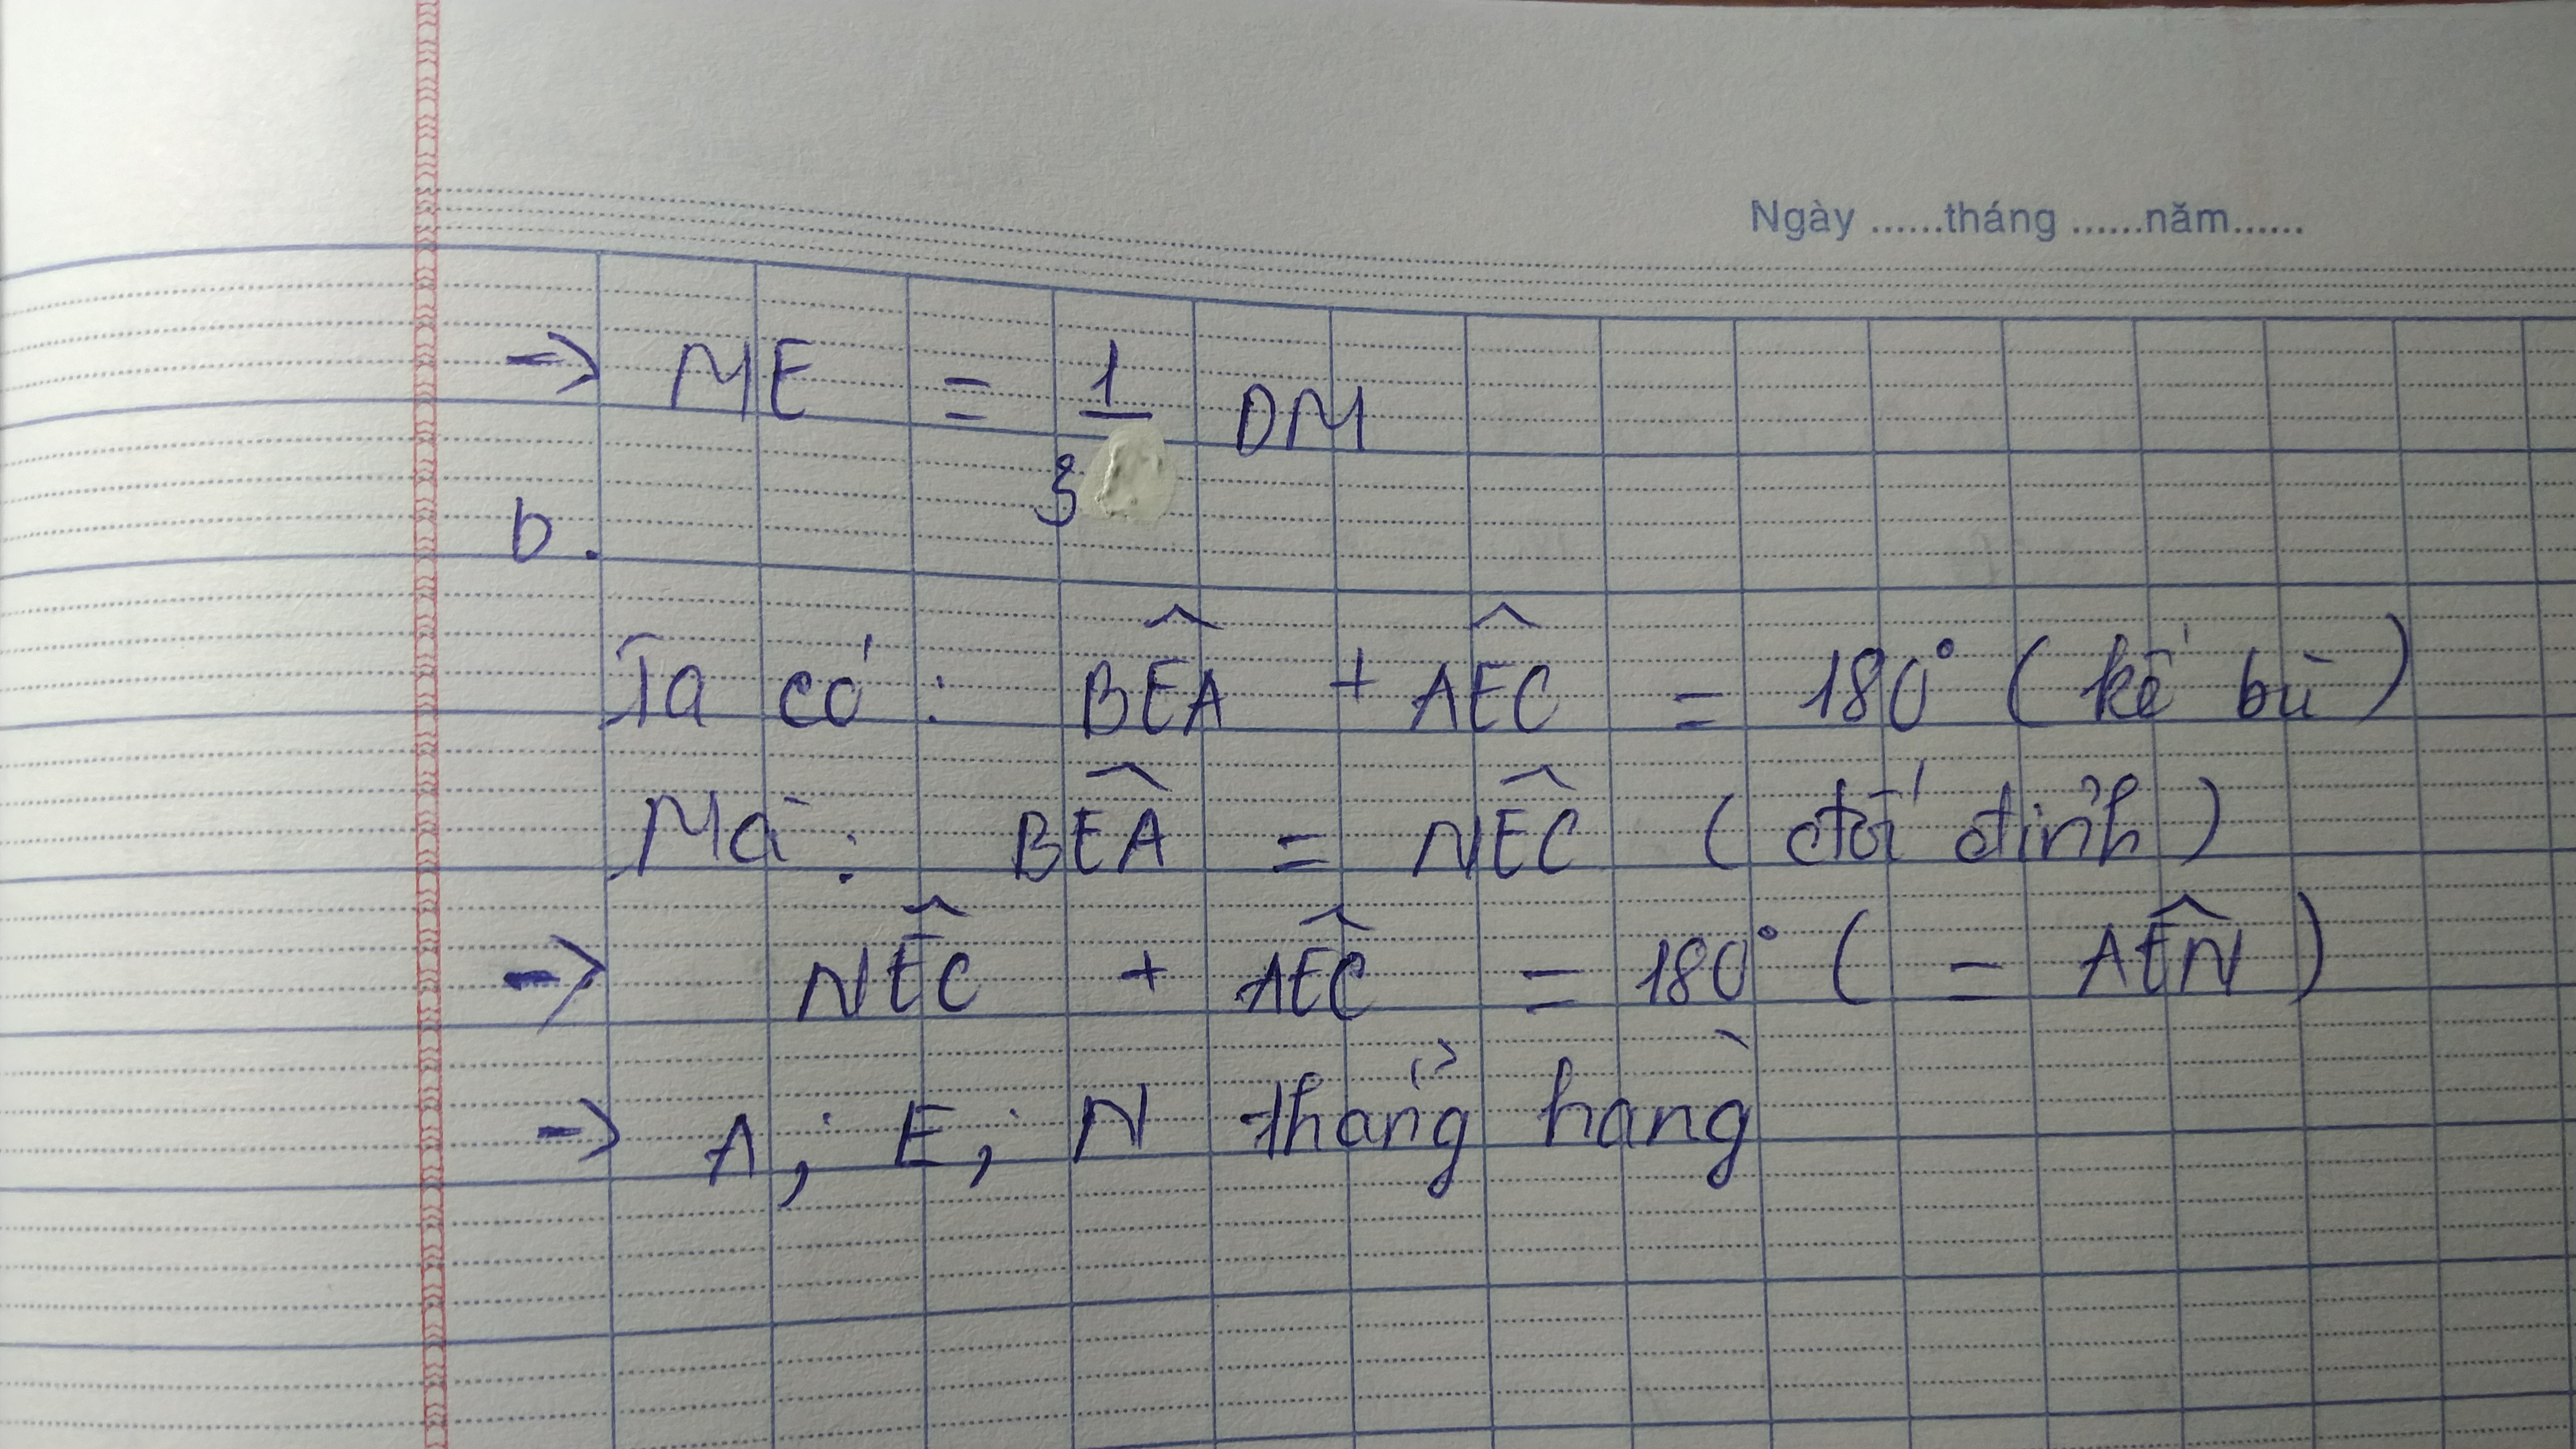 Ngày ......tháng ......năm......
→ ME = 1/3 DM
b.
Ta có: BÊA + AÊC = 180° (kề bù)
Mà: BÊA = NÊC (đối đỉnh)
→ NÊC + AÊC = 180° (= AÊN)
→ A; E; N thẳng hàng